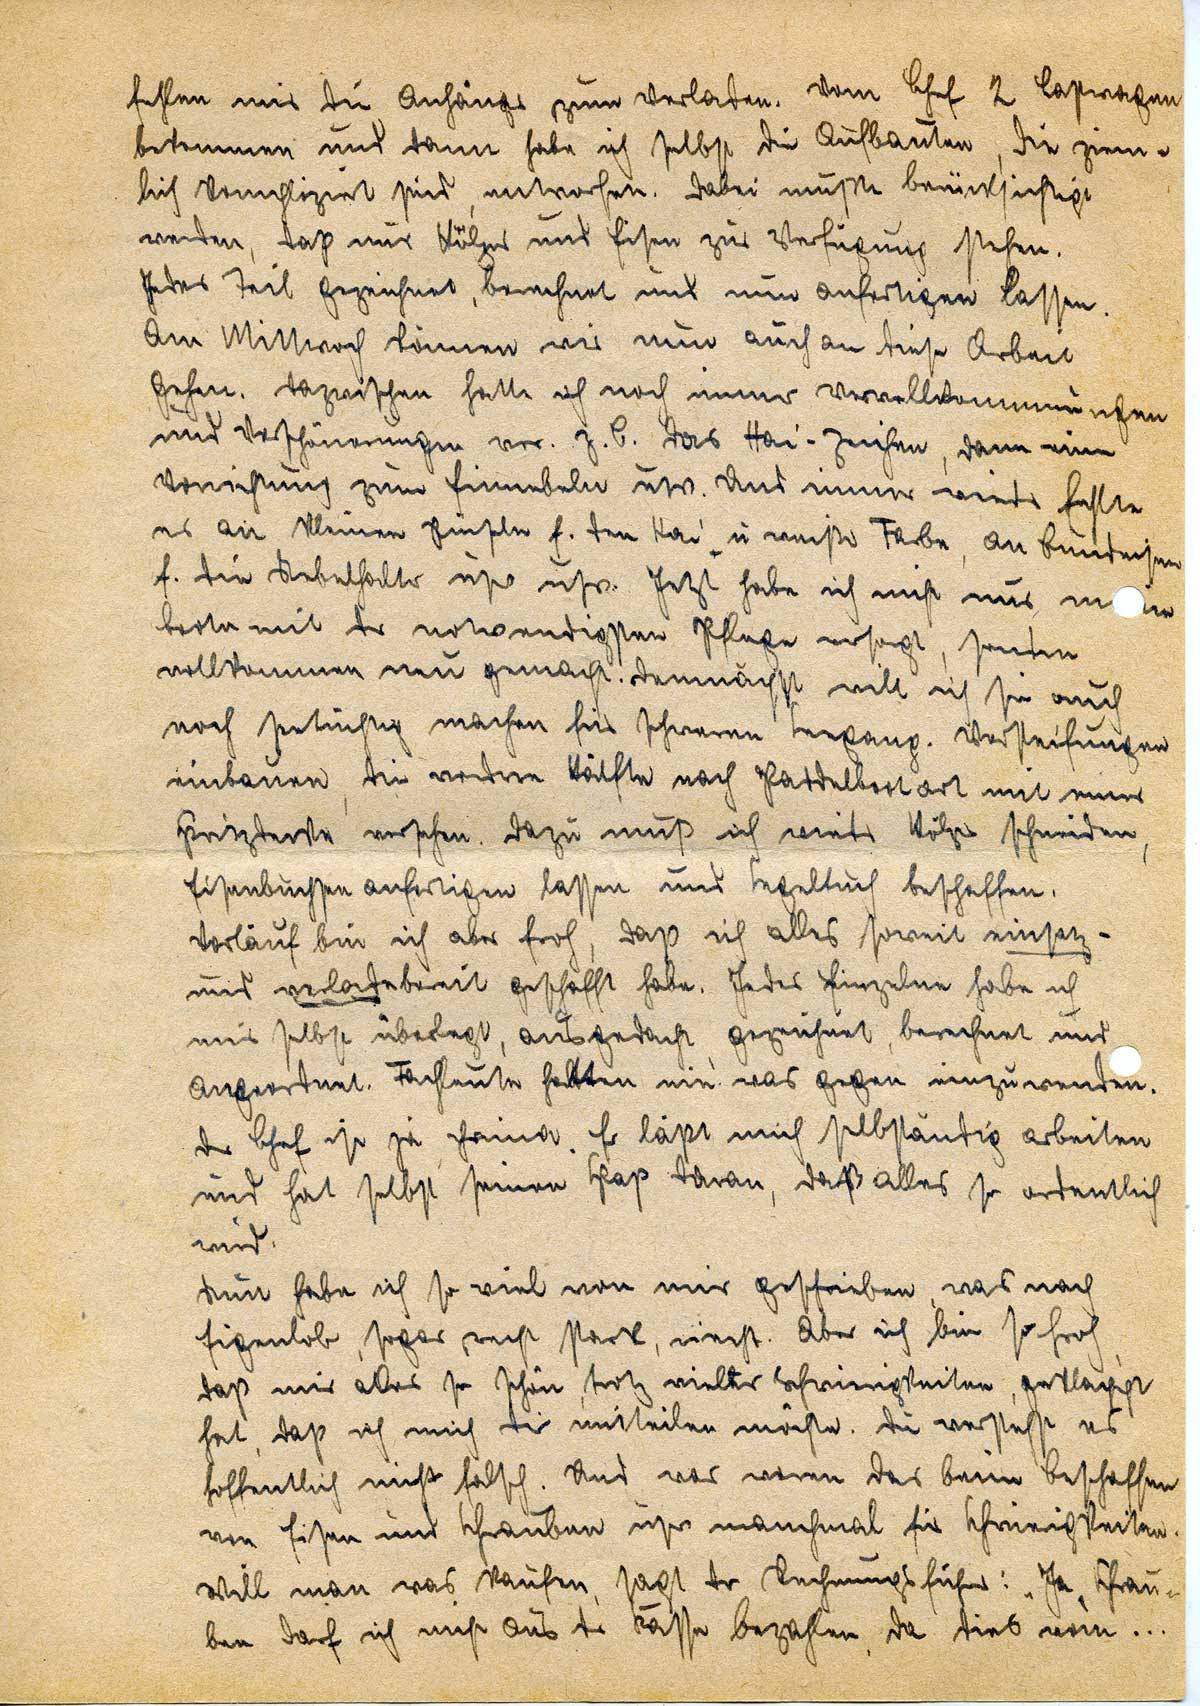 fehlen mir die Anhänger zum Verladen. Vom Chef 2 Lastwagen
bekommen und dann habe ich selbst die Aufbauten, die ziem-
lich kompliziert sind, entworfen. Dabei mußte berücksichtigt
werden, daß nur Hölzer und Eisen zur Verfügung stehen.
Jedes Teil gezeichnet, berechnet und nun anfertigen lassen.
Am Mittwoch können wir nun auch an diese Arbeit
gehen. Dazwischen hatte ich noch immer Vervollkommnungen
und Verschönerungen vor. z.B. das Hai-Zeichen, dann eine
Vorrichtung zum Einnebeln usw. Und immer wieder fehlte
es an kleinen Pinseln f. den Hai u weiße Farbe, an Bandeisen
f. die Nebelhalter usw usw. Jetzt habe ich nicht nur meine
Boote mit der notwendigsten Pflege versorgt, sondern
vollkommen neu gemacht. Demnächst will ich sie auch
noch seetüchtig machen für schweren Seegang. Versteifungen
einbauen, die vordere Hälfte nach Paddelbootart mit einer
Spritzdecke versehen. Dazu muß ich wieder Hölzer schneiden,
Eisenbuchsen anfertigen lassen und Segeltuch beschaffen.
Vorläuf bin ich aber froh, daß ich alles soweit einsatz-
und verladebereit geschafft habe. Jedes Einzelne habe ich
mir selbst überlegt, ausgedacht, gezeichnet, berechnet und
angeordnet. Fachleute hatten nie was gegen einzuwenden.
Der Chef ist ja prima. Er läßt mich selbständig arbeiten
und hat selbst seinen Spaß daran, daß alles so ordentlich
wird.
Nun habe ich so viel von mir geschrieben, was nach
Eigenlob, sogar recht stark, riecht. Aber ich bin so froh,
daß mir alles so schön, trotz vieler Schwierigkeiten, geklappt
hat, daß ich mich Dir mitteilen möchte. Du verstehst es
hoffentlich nicht falsch. Und was waren das beim Beschaffen
von Eisen und Schrauben usw manchmal für Schwierigkeiten.
Will man was kaufen, sagt der Rechnungsführer: „Ja, Schrau-
ben darf ich nicht aus der Kasse bezahlen, da dies vom ...